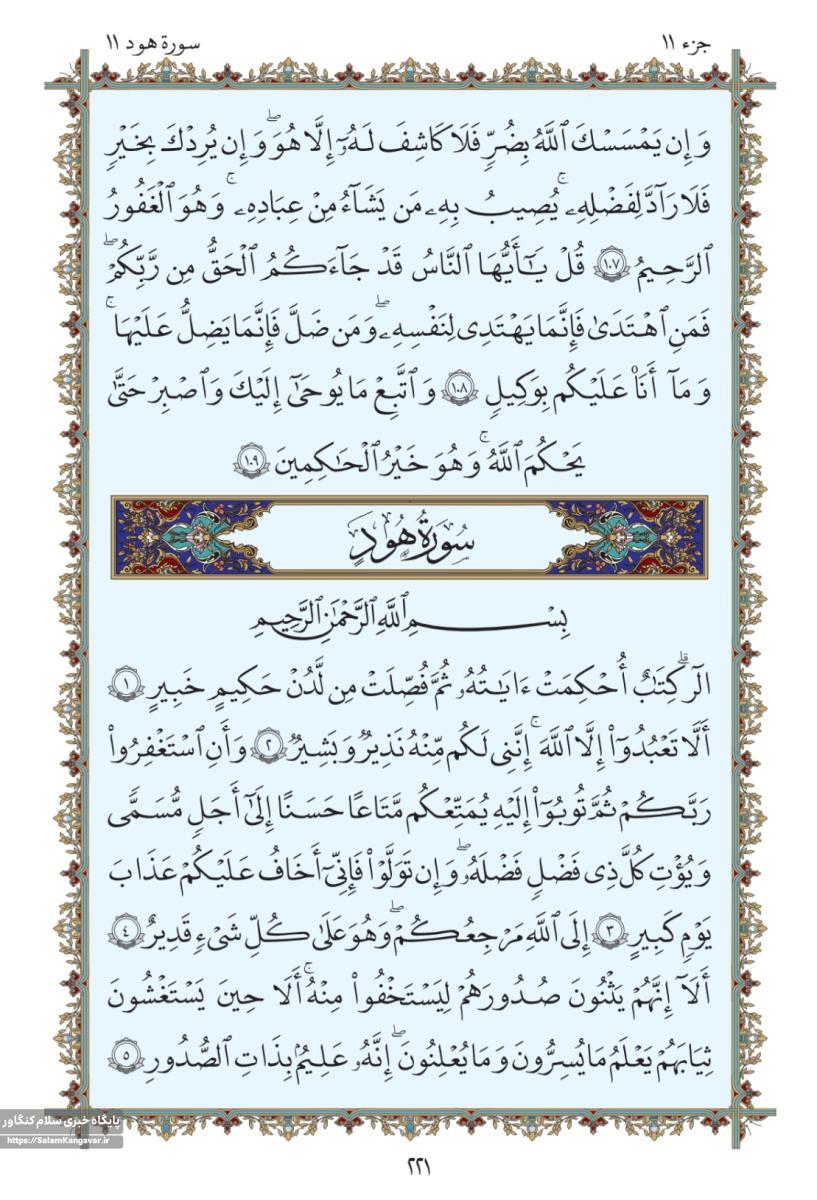 جزء ۱۱
سورة هود ۱۱
وَإِن يَمْسَسْكَ ٱللَّهُ بِضُرٍّ فَلَا كَاشِفَ لَهُۥٓ إِلَّا هُوَ ۖ وَإِن يُرِدْكَ بِخَيْرٍ
فَلَا رَآدَّ لِفَضْلِهِۦ ۚ يُصِيبُ بِهِۦ مَن يَشَآءُ مِنْ عِبَادِهِۦ ۚ وَهُوَ ٱلْغَفُورُ
ٱلرَّحِيمُ ١٠٧ قُلْ يَـٰٓأَيُّهَا ٱلنَّاسُ قَدْ جَآءَكُمُ ٱلْحَقُّ مِن رَّبِّكُمْ ۖ
فَمَنِ ٱهْتَدَىٰ فَإِنَّمَا يَهْتَدِى لِنَفْسِهِۦ ۖ وَمَن ضَلَّ فَإِنَّمَا يَضِلُّ عَلَيْهَا ۚ
وَمَآ أَنَا۠ عَلَيْكُم بِوَكِيلٍ ١٠٨ وَٱتَّبِعْ مَا يُوحَىٰٓ إِلَيْكَ وَٱصْبِرْ حَتَّىٰ
يَحْكُمَ ٱللَّهُ ۚ وَهُوَ خَيْرُ ٱلْحَـٰكِمِينَ ١٠٩
سُورَةُ هُودٍ
بِسْمِ ٱللَّهِ ٱلرَّحْمَـٰنِ ٱلرَّحِيمِ
الٓر ۚ كِتَـٰبٌ أُحْكِمَتْ ءَايَـٰتُهُۥ ثُمَّ فُصِّلَتْ مِن لَّدُنْ حَكِيمٍ خَبِيرٍ ١
أَلَّا تَعْبُدُوٓا۟ إِلَّا ٱللَّهَ ۚ إِنَّنِى لَكُم مِّنْهُ نَذِيرٌ وَبَشِيرٌ ٢ وَأَنِ ٱسْتَغْفِرُوا۟
رَبَّكُمْ ثُمَّ تُوبُوٓا۟ إِلَيْهِ يُمَتِّعْكُم مَّتَـٰعًا حَسَنًا إِلَىٰٓ أَجَلٍ مُّسَمًّى
وَيُؤْتِ كُلَّ ذِى فَضْلٍ فَضْلَهُۥ ۖ وَإِن تَوَلَّوْا۟ فَإِنِّىٓ أَخَافُ عَلَيْكُمْ عَذَابَ
يَوْمٍ كَبِيرٍ ٣ إِلَى ٱللَّهِ مَرْجِعُكُمْ ۖ وَهُوَ عَلَىٰ كُلِّ شَىْءٍ قَدِيرٌ ٤
أَلَآ إِنَّهُمْ يَثْنُونَ صُدُورَهُمْ لِيَسْتَخْفُوا۟ مِنْهُ ۚ أَلَا حِينَ يَسْتَغْشُونَ
ثِيَابَهُمْ يَعْلَمُ مَا يُسِرُّونَ وَمَا يُعْلِنُونَ ۖ إِنَّهُۥ عَلِيمٌۢ بِذَاتِ ٱلصُّدُورِ ٥
پایگاه خبری سلام کنگاور
https://SalamKangavar.ir
۲۲۱